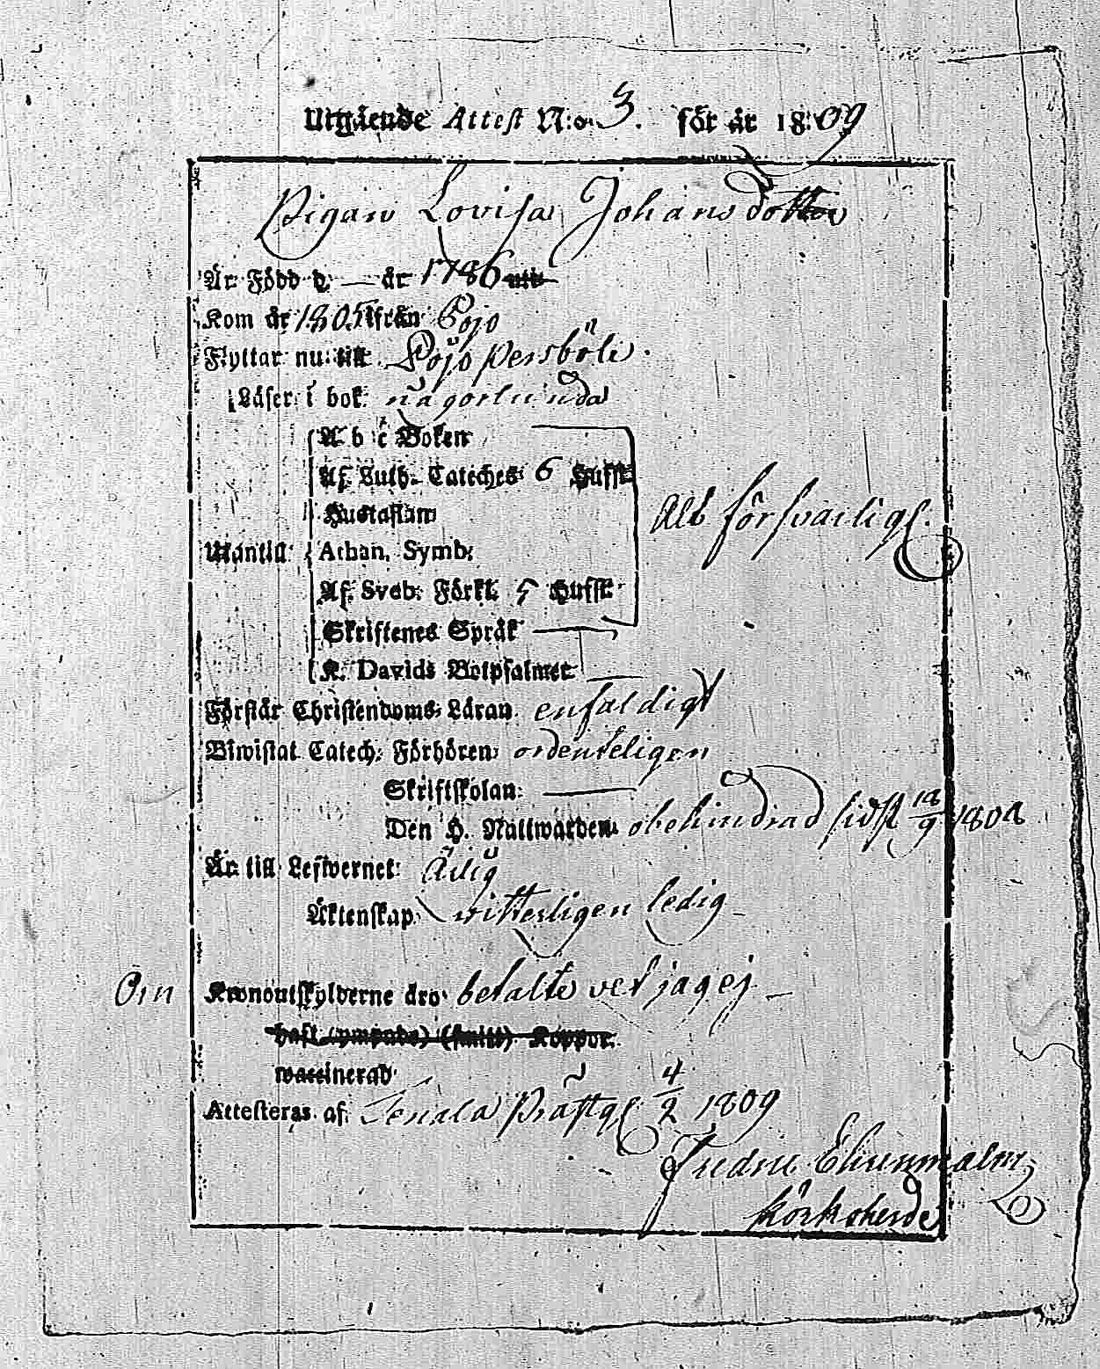 Utgående Attest N:o 3. för år 1809
Pigan Lovisa Johansdotter
Är Född d. — år 1786
Kom år 1805 ifrån Pojo
Flyttar nu till Pojo Persböle.
Läser i bok någorlunda
A b c Boken
Af Luth. Cateches 6 Hufst.
Hustaflan
Utantill Athan. Symb:
Af Sveb. Förkl. 5 Hufst.
Skriftenes Språk
K. Davids Botpsalmer
Alt försvarligt.
Förstår Christendoms-Läran enfaldigt
Biwistat Catech: Förhören ordenteligen
Skriftskolan: —
Den H. Nattwarden obehindrad sidst 18/9 1808
Är till Lefwernet Ärlig
Äktenskap witterligen ledig
Om Kronoutskylderne äro betalte vet jag ej
haft Koppor.
waccinerad
Attesteras af Tenala Prästg. 4/2 1809
Fredric Ehrenmalm
Körkoherde